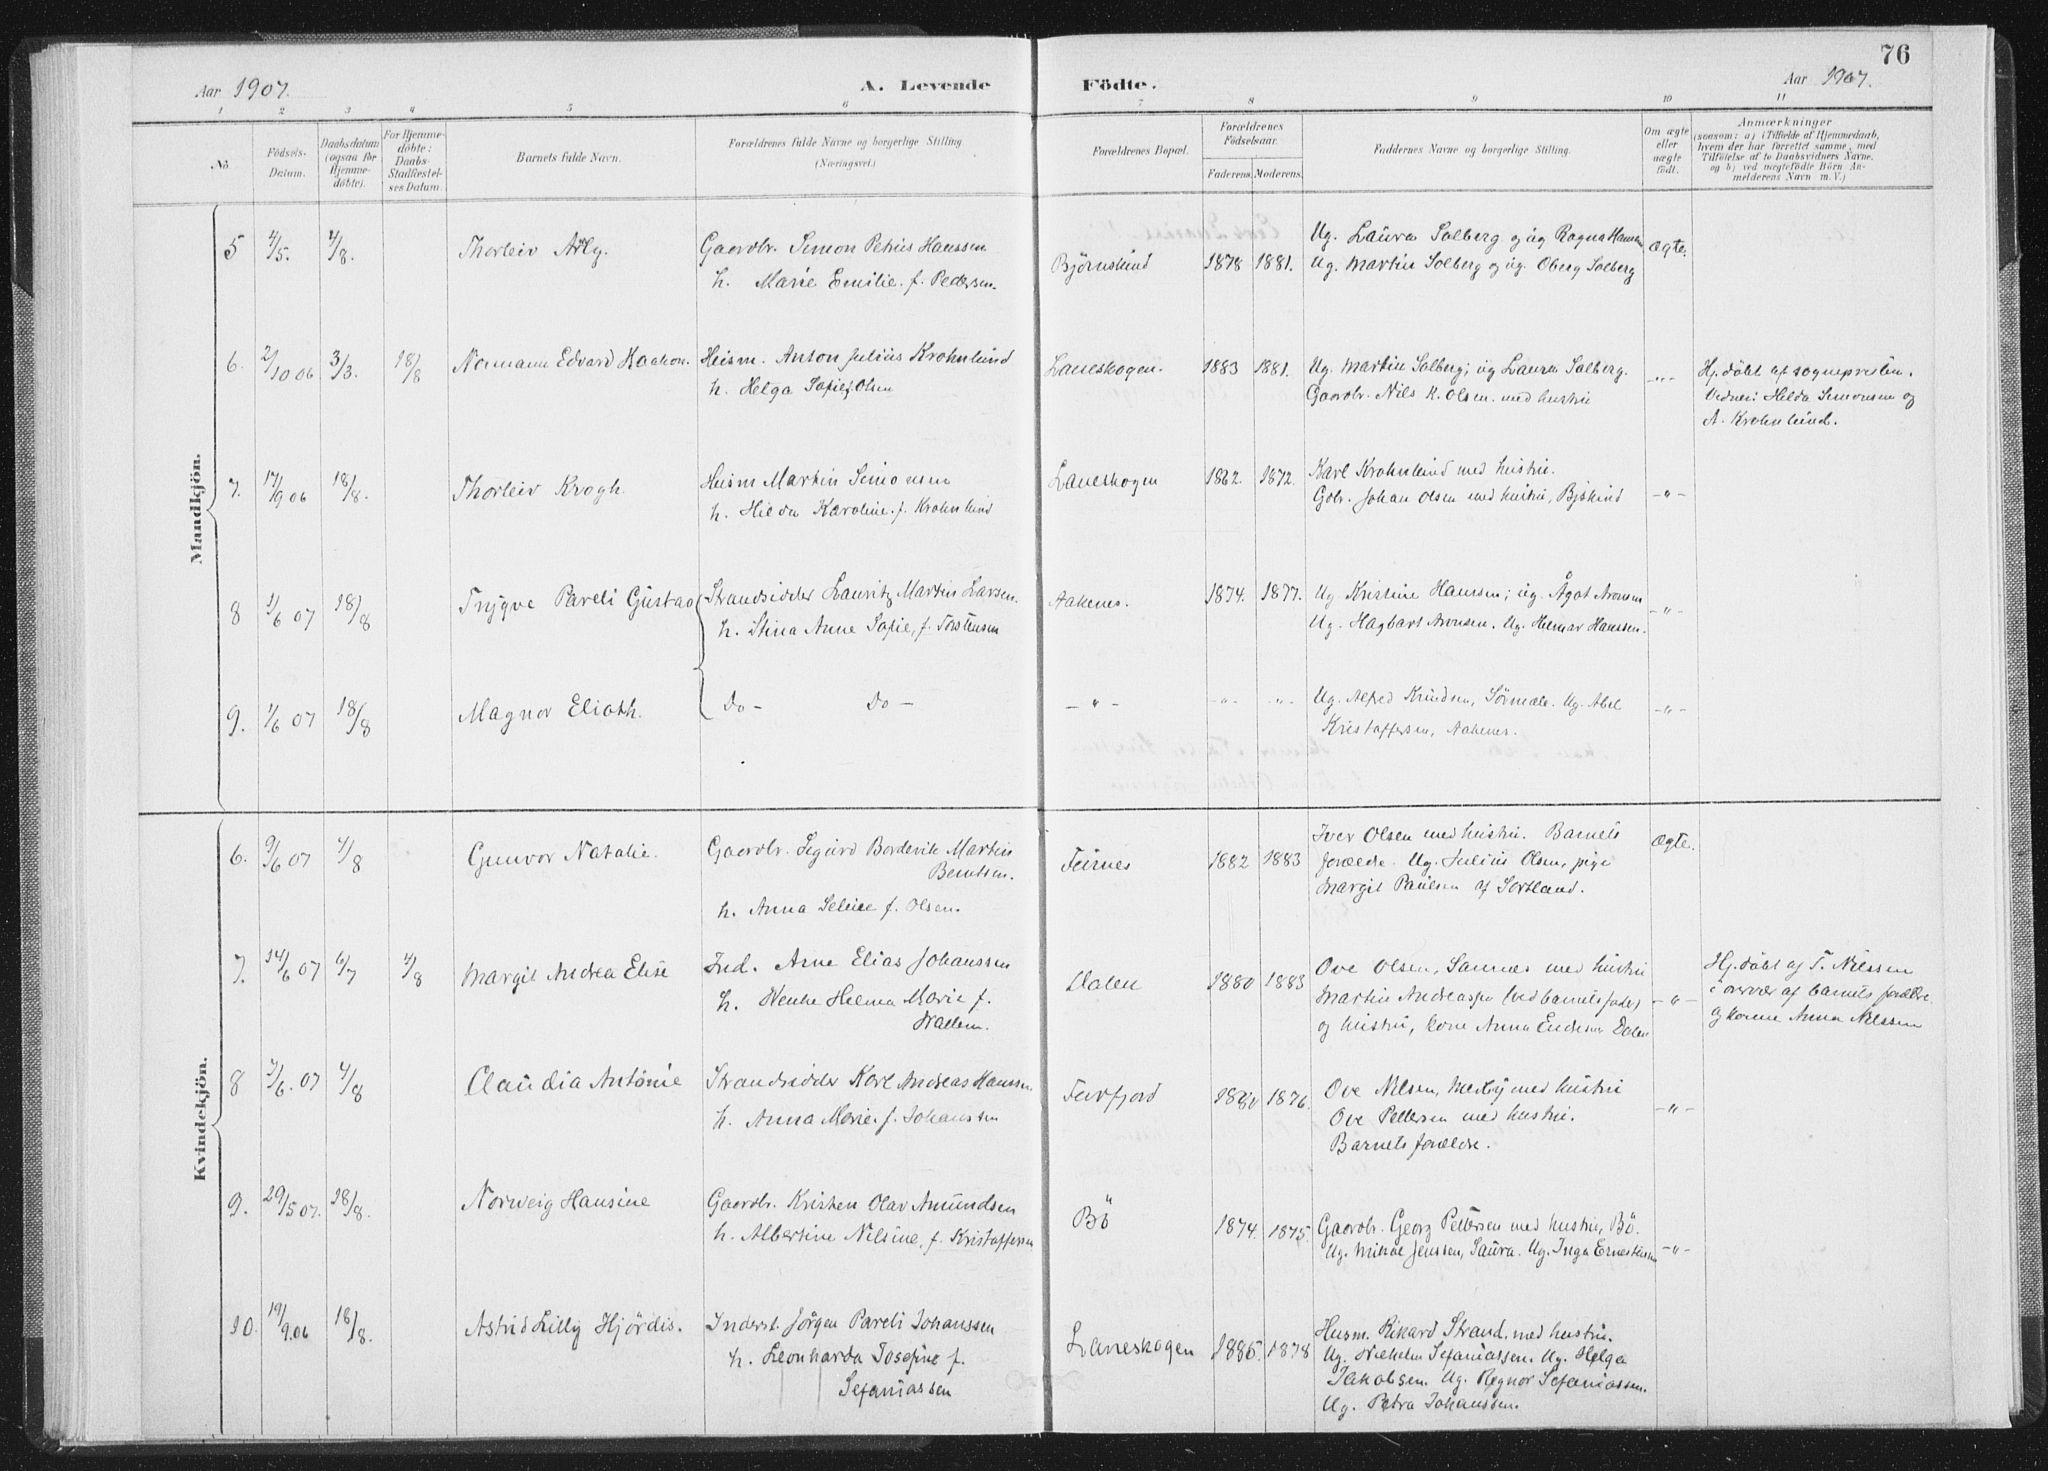 76
Aar 1907.
A. Levende Födte.
Aar 1907.
1 2 3 4 5 6 7 8 9 10 11
No.
Födsels-Datum.
Daabsdatum (ogsaa for Hjemme-döbte).
For Hjemme-döbte: Daabs-Stadfæstel-ses Datum.
Barnets fulde Navn.
Forældrenes fulde Navne og borgerlige Stilling. (Næringsvei.)
Forældrenes Bopæl.
Forældrenes Födselsaar.
Faderens. Moderens.
Faddernes Navne og borgerlige Stilling.
Om ægte eller uægte födt.
Anmærkninger
(saasom: a) i Tilfælde af Hjemmedaab, hvem der har forrettet samme, med Tilföielse af to Daabsvidners Navne, og b) ved uægtefödte Börn An-melderens Navn m. V.)
Mandkjön.
5 4/5. 4/8. Thorleiv Arly. Gaardbr. Simon Petrus Hanssen
h. Marie Emilie. f. Pedersen.
Bjørnskind 1878 1881.
Ug. Laura Solberg og ug Ragna Hansen
Ug. Martin Solberg og ug. Oberg Solberg
Ægte.
6. 2/10 06 3/3. 18/8 Normann Edvard Haakon. Husm. Anton Julius Krohnlund
h. Helga Sofie f. Olsen
Laneskogen. 1883 1881.
Ug. Martin Solberg; ug Laura Solberg.
Gaardbr. Nils K. Olsen. med hustru
-"-
Hj. döbt af sognepresten.
Vidner: Hilda Simonsen og
A. Krohnlund.
7. 17/9 06 18/8. Thorleiv Krogh. Husm Martin Simonsen
h. Hilda Karoline. f. Krohnlund
Laneskogen 1862. 1872.
Karl Krohnlund med hustru.
Gdbr. Johan Olsen med hustru, Bjskind
-"-
8 1/6 07 18/8 Trygve Pareli Gustav Strandsidder Lauritz Martin Larsen.
h. Stina Anne Sofie, f. Torstensen
Aakenes. 1874. 1877.
Ug Kristine Hansen; ug. Ågot Aronsen
Ug. Hagbart Aronsen. Ug. Hilmar Hanssen.
-"-
9. 1/6 07 18/8 Magnor Elioth. Do - Do -
-"- -"- -"-
Ug. Alfred Knudsen, Sørmæle. Ug. Abel
Kristoffersen, Aakenes.
-"-
Kvindekjön.
6. 9/6 07 4/8 Gunvor Natalie. Gaardbr. Sigurd Bordevik Martin
Berntsen.
h. Anna Seline f. Olsen.
Feirnes 1882 1883
Iver Olsen med hustru. Barnets
forældre. Ug. Julius Olsen, pige
Margit Paulsen af Sortland.
Ægte.
7. 14/6 07 6/7 4/8 Margit Andrea Elise Ind. Arne Elias Johanssen
h. Wenke Helma Marie f.
Wallem.
Dalen 1880 1883
Ove Olsen, Sannes med hustru
Martin Andreassen (ved barnets fader)
og hustru, kone Anna
-"-
Hj. döbt af T. Nilssen
i overvær af barnets forældre
og konen Anna Nilssen
8 7/6. 07 4/8 Claudia Antonie Strandsidder Karl Andreas Hanssen
h. Anna Marie. f. Johanssen
Feirfjord 1880 1876.
Ove Nilsen, Melby med hustru
Ove Pettersen med hustru.
Barnets forældre.
-"-
9. 29/5 07. 18/8. Norweig Hansine Gaardbr. Kristen Olav Amundsen
h. Albertine Nilsine, f. Kristoffersen
Bö 1874. 1875.
Gaardbr. Georg Pettersen med hustru, Bö.
Ug. Mikal Jenssen, Saura. Ug. Inga Ernestinsen
-"-
10. 19/9.06 18/8. Astrid Lilly Hjördis. Inderst. Jörgen Pareli Johanssen
h. Leonharda Josefine f.
Sefaniassen
Laneskogen 1885. 1878
Husm. Rikard Strand. med hustru.
Ug. Wilhelm Sefaniassen. Ug. Helga
Jakobsen. Ug. Ragnar Sefaniassen.
Ug. Petra Johanssen.